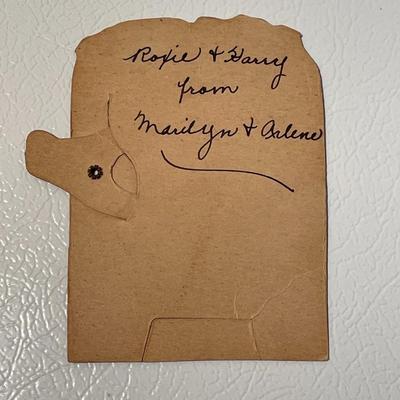 Roxie & Harry
from
Marilyn & Arlene